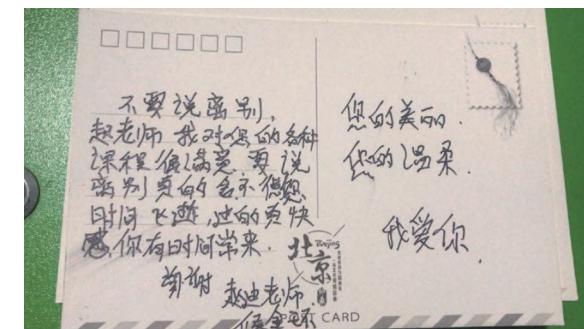 不要说离别，
赵老师 我对您的各种
课程很满意 要说
离别真的舍不得您
时间飞逝，过的真快
你有时间常来.
谢谢
赵迪老师.
您的美丽.
您的温柔.
我爱你.
北京
Beijing
CARD